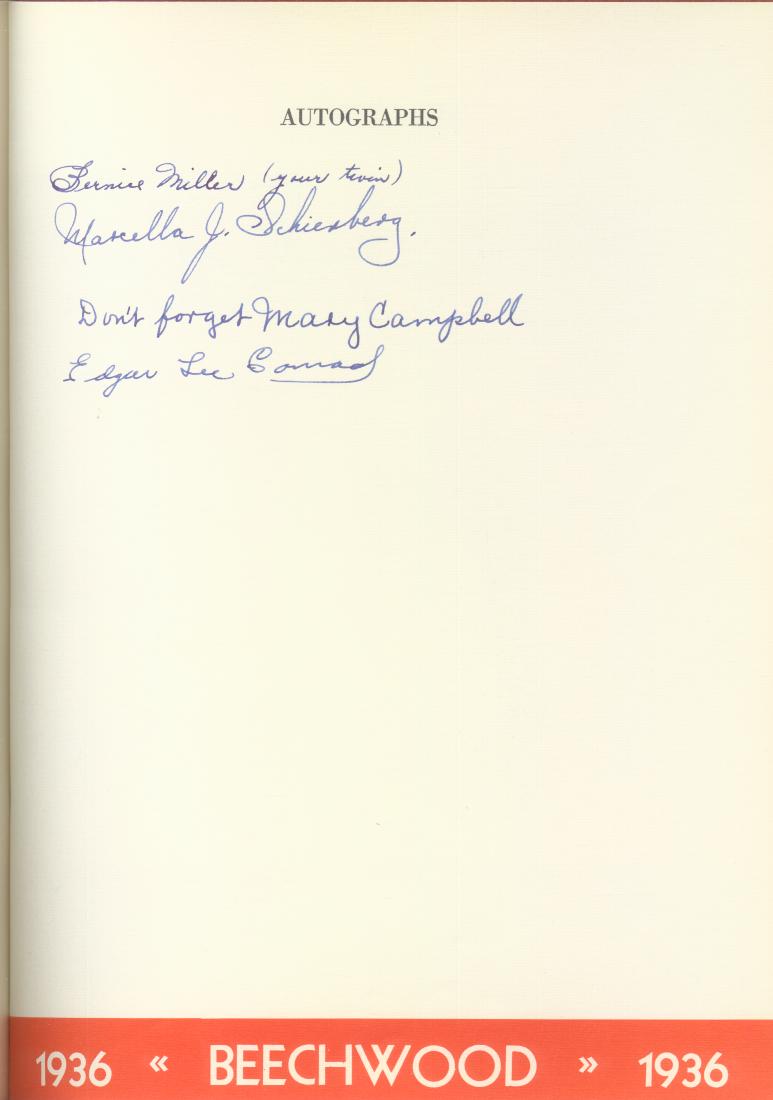 AUTOGRAPHS
Bernice Miller (your twin)
Marcella J. Schierberg.
Don't forget Mary Campbell
Edgar Lee Conrad
1936 « BEECHWOOD » 1936